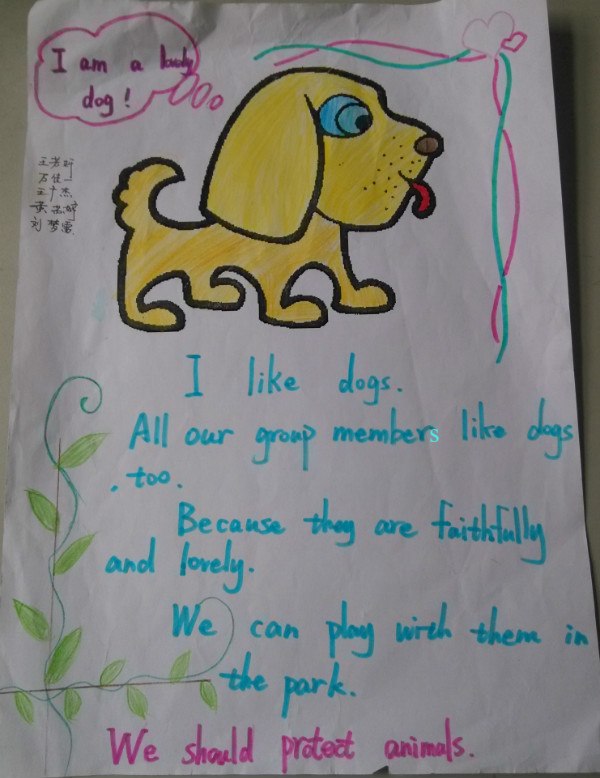 I am a lovely
dog!
I like dogs.
All our group members like dogs
, too.
Because they are faithfully
and lovely.
We can play with them in
the park.
We should protect animals.